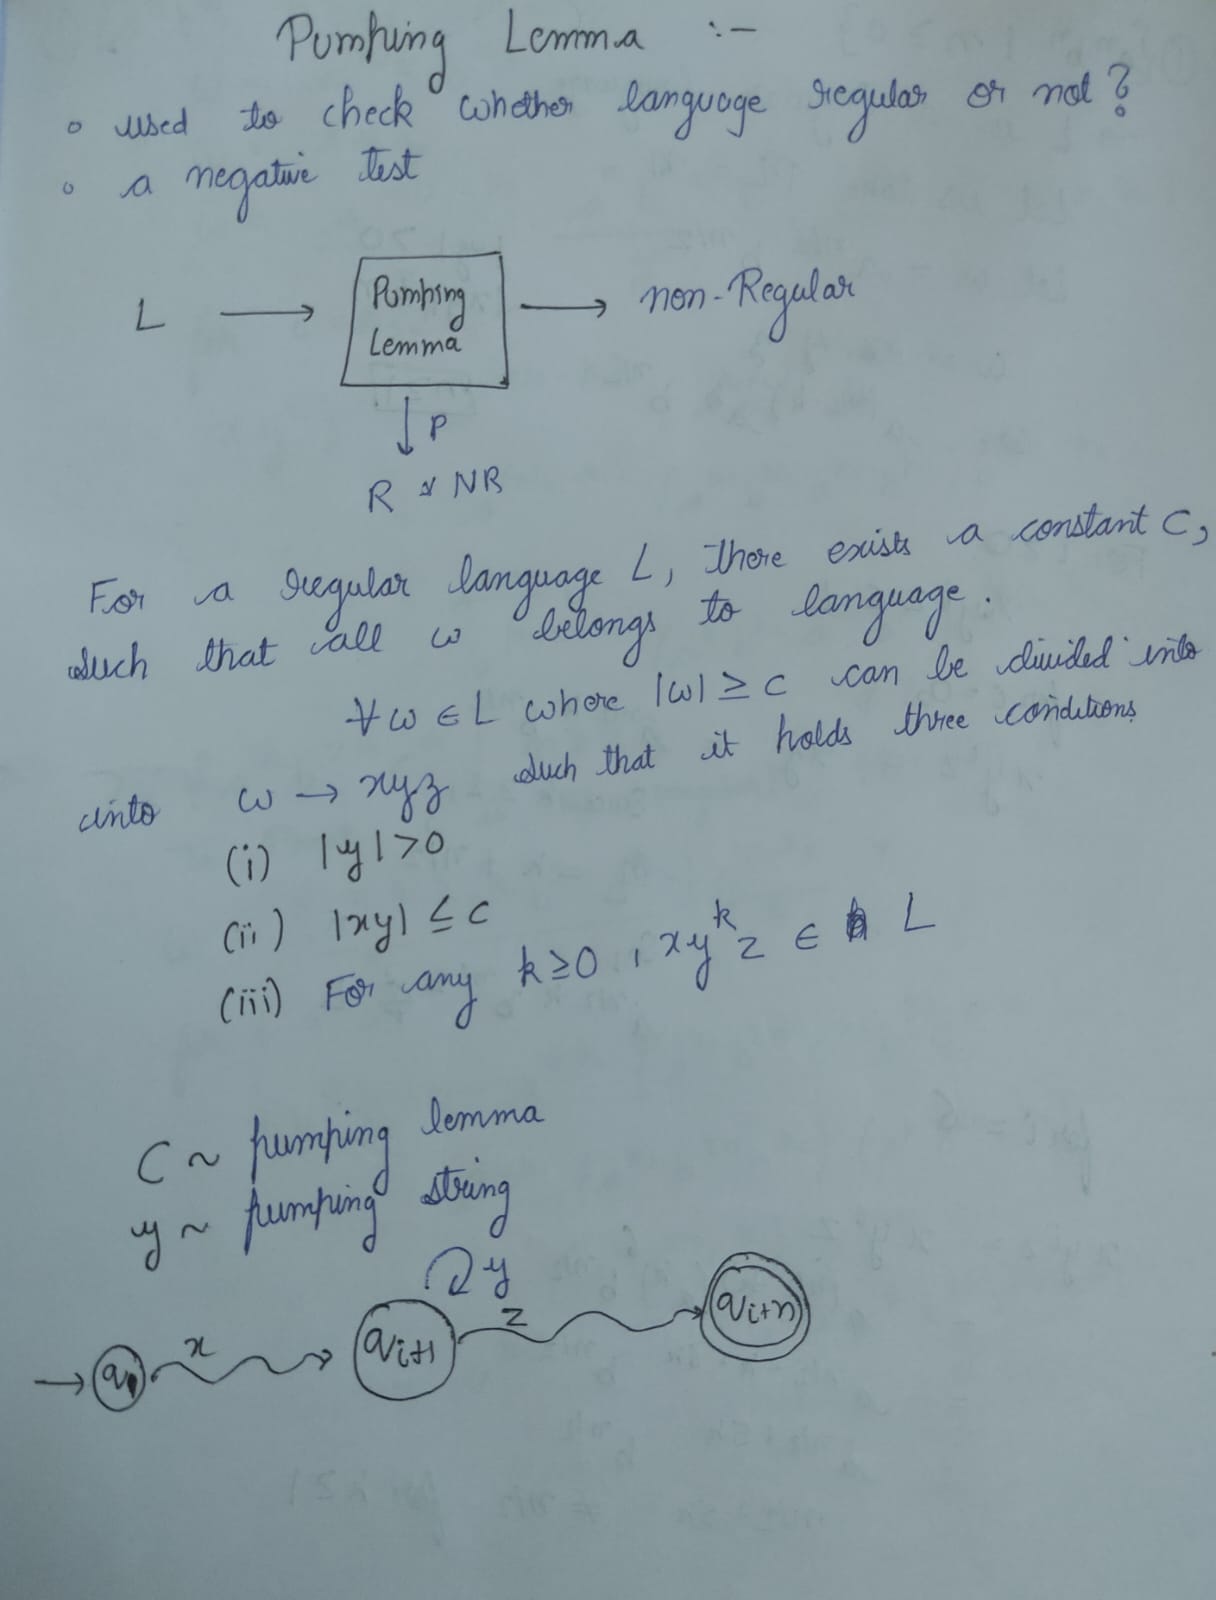 Pumping Lemma :-
◦ used to check whether language regular or not?
◦ a negative test
L → Pumping Lemma → non-Regular
↓ P
R NR
For a regular language L, there exists a constant C,
such that all ω belongs to language.
∀ ω ∈ L where |ω| ≥ c can be divided into
into ω → xyz such that it holds three conditions
(i) |y| > 0
(ii) |xy| ≤ c
(iii) For any k ≥ 0, xy^k z ∈ L
C ~ pumping lemma
y ~ pumping string
y
x q_{i+1} z q_{i+n}